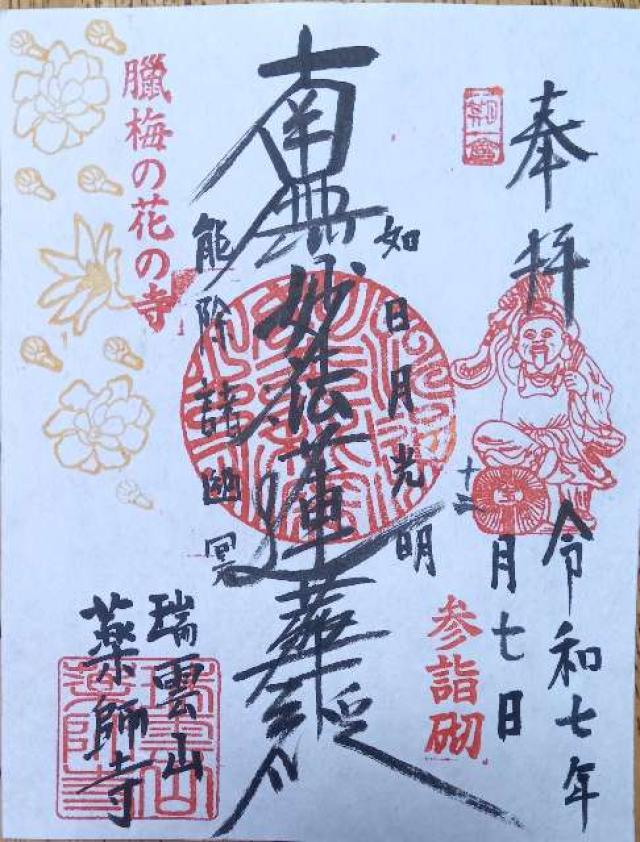 奉拝
令和七年
十二月七日
参詣砌
一期一會
如日月光明
南無妙法蓮華経
能除諸幽冥
臘梅の花の寺
瑞雲山
薬師寺